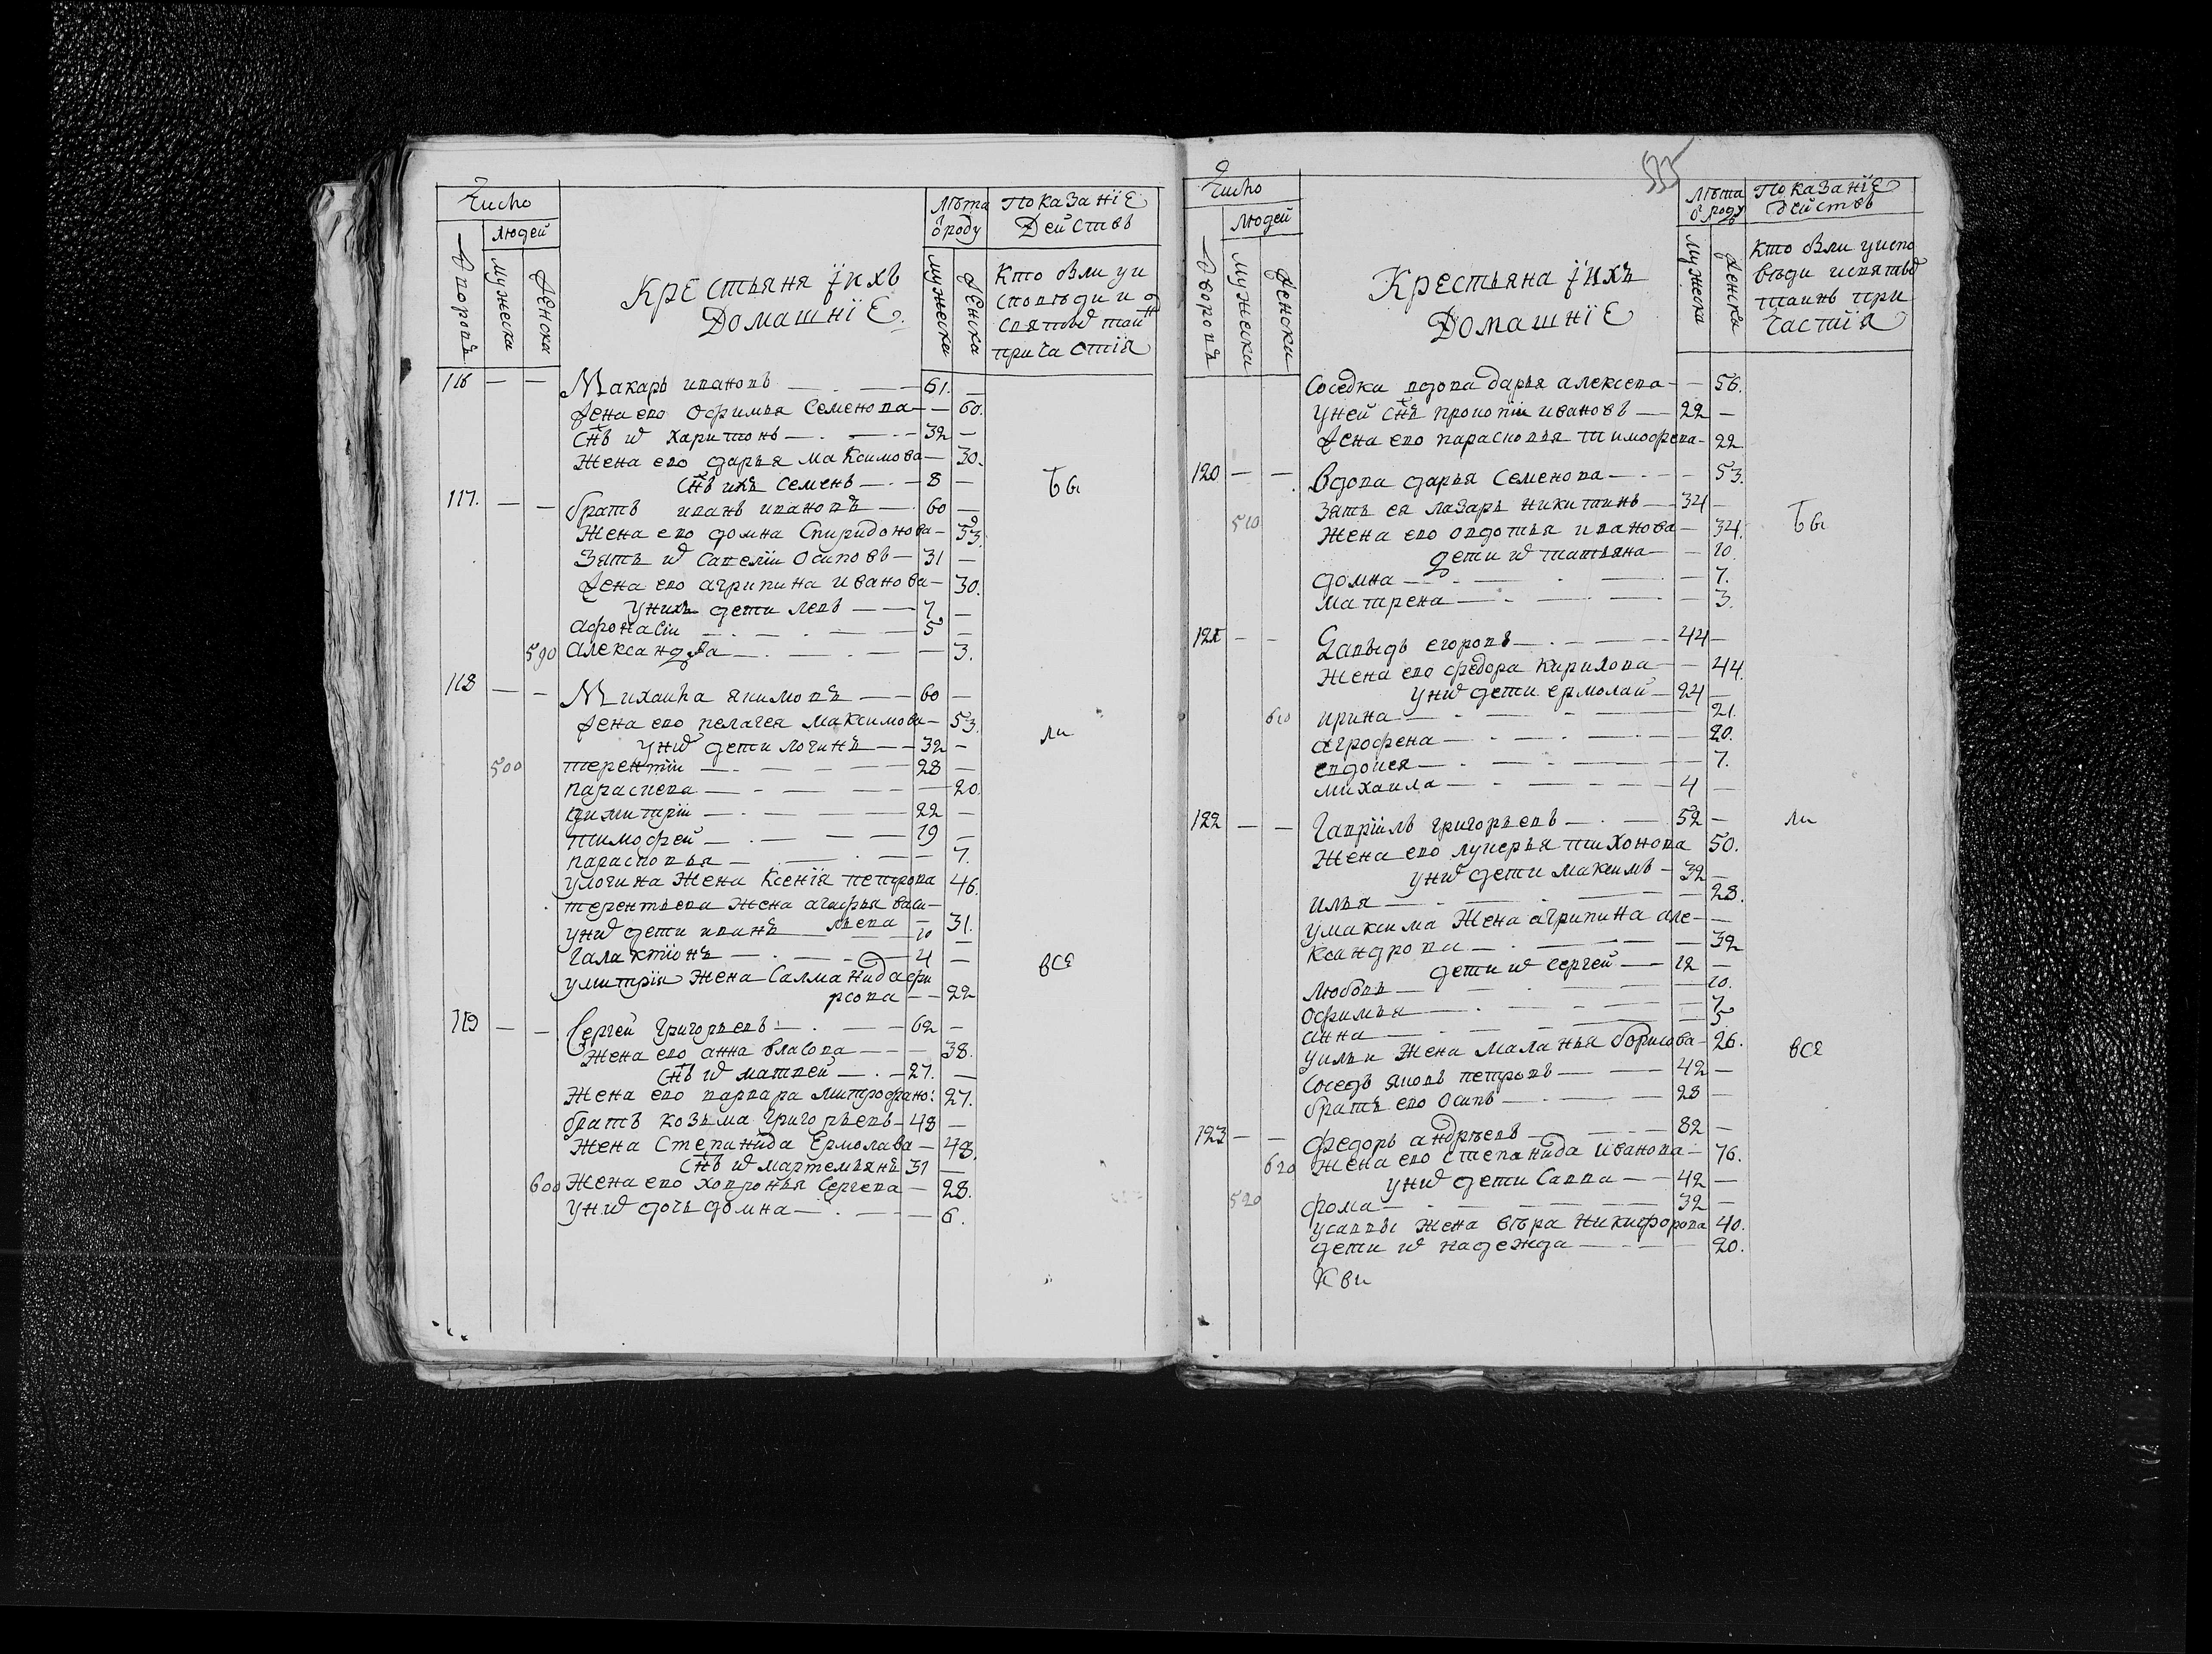 Число
Людей
Дворовъ
Мужеска
Женска
Крестьяня їихъ
Домашнїе
Лѣта
ѿ роду
Мужеска
Женска
Показанїе
Действъ
Кто были уи
споведи и
святыѡ таи
причастїя
116 — — Макаръ ивановъ — 61. —
Жена ево офимья Семенова — — 60.
Снъ иѡ харитонъ — 32 —
Жена ево дарья Максимова — 30.
Снъ ихъ Семенъ — 8 —
117. — — братъ иванъ ивановъ — 60 —
Жена ево домна Спиридонова — 53.
Зять иѡ Савелїи Осиповъ — 31 —
Жена ево агрипина Иванова — 30.
Унихъ дети левъ — 7 —
афонасїи — 5 —
590 александра — — 3.
118 — — Михаила якимовъ — 60 —
Жена ево пелагея Максимова — 53.
униѡ дети логинъ — 32 —
500 терентїи — 28 —
парасцева — — 20.
димитрїи — 22 —
тимофей — 19 —
парасковья — — 7.
улогина Жена Ксенїя петрова 46.
терентьева жена агафья Васи—
льева — 31.
униѡ дети иванъ 10 —
Галактїонъ — 4 —
умитрїя Жена Саламанида фи
рсова — — 22
119 — — Сергей григорьевъ — 62 —
Жена ево анна власова — — 38.
Снъ иѡ матвей — 27. —
Жена ево варвара митрофано: 27.
братъ козьма григорьевъ — 48 —
Жена Степанида Ермолава — 48.
Снъ иѡ мартемьянъ 31 —
600 Жена ево ховронья Сергева — 28.
униѡ дочь домна — — 6.
Бы
ли
все
535
Число
Людей
Дворовъ
Мужески
Женски
Крестьяна їихъ
Домашнїе
Лѣта
ѿ роду
Мужеска
Женска
Показанїе
действъ
Кто были уиспо
вѣди исвятыѡ
таинъ при
частїя
Соседка вдова дарья алексева — — 56.
Уней Снъ прокопїи ивановъ — 22 —
Жена ево парасковья тимофева — 22
120 — — Вдова дарья Семенова — — 53.
510 Зять ея лазарь никитинъ — 34 —
Жена ево овдотья иванова — 34.
дети иѡ татьяна — — 10.
домна — — 7.
матрена — — 3.
121 — — Давыдъ егоровъ — 44 —
Жена ево федора Кирилова — — 44.
униѡ дети ермолаи — 24 —
610 ирина — 21.
агрофена — — 20.
евдокея — — 7.
михаила — 4 —
122 — — Гаврїилъ григорьевъ — 52 —
Жена ево лукерья тихонова 50.
униѡ дети максимъ — 32 —
илья — 28.
умаксима Жена агрипина але— —
ксандрова — — 32
дети иѡ сергей — 12 —
Любовь — — 10.
офимья — — 7
анна — — 5
уильи Жена Маланья борисова — 26.
Соседъ яковъ петровъ — 42 —
братъ ево Осипъ — 28 —
123 — — Федоръ андреевъ — 82 —
620 Жена ево степанида иванова — 76.
униѡ дети Савва — 42 —
520 фома — 32 —
усаввы жена вѣра никифорова 40.
дети иѡ надежда — — 20.
Кви
Бы
ли
все